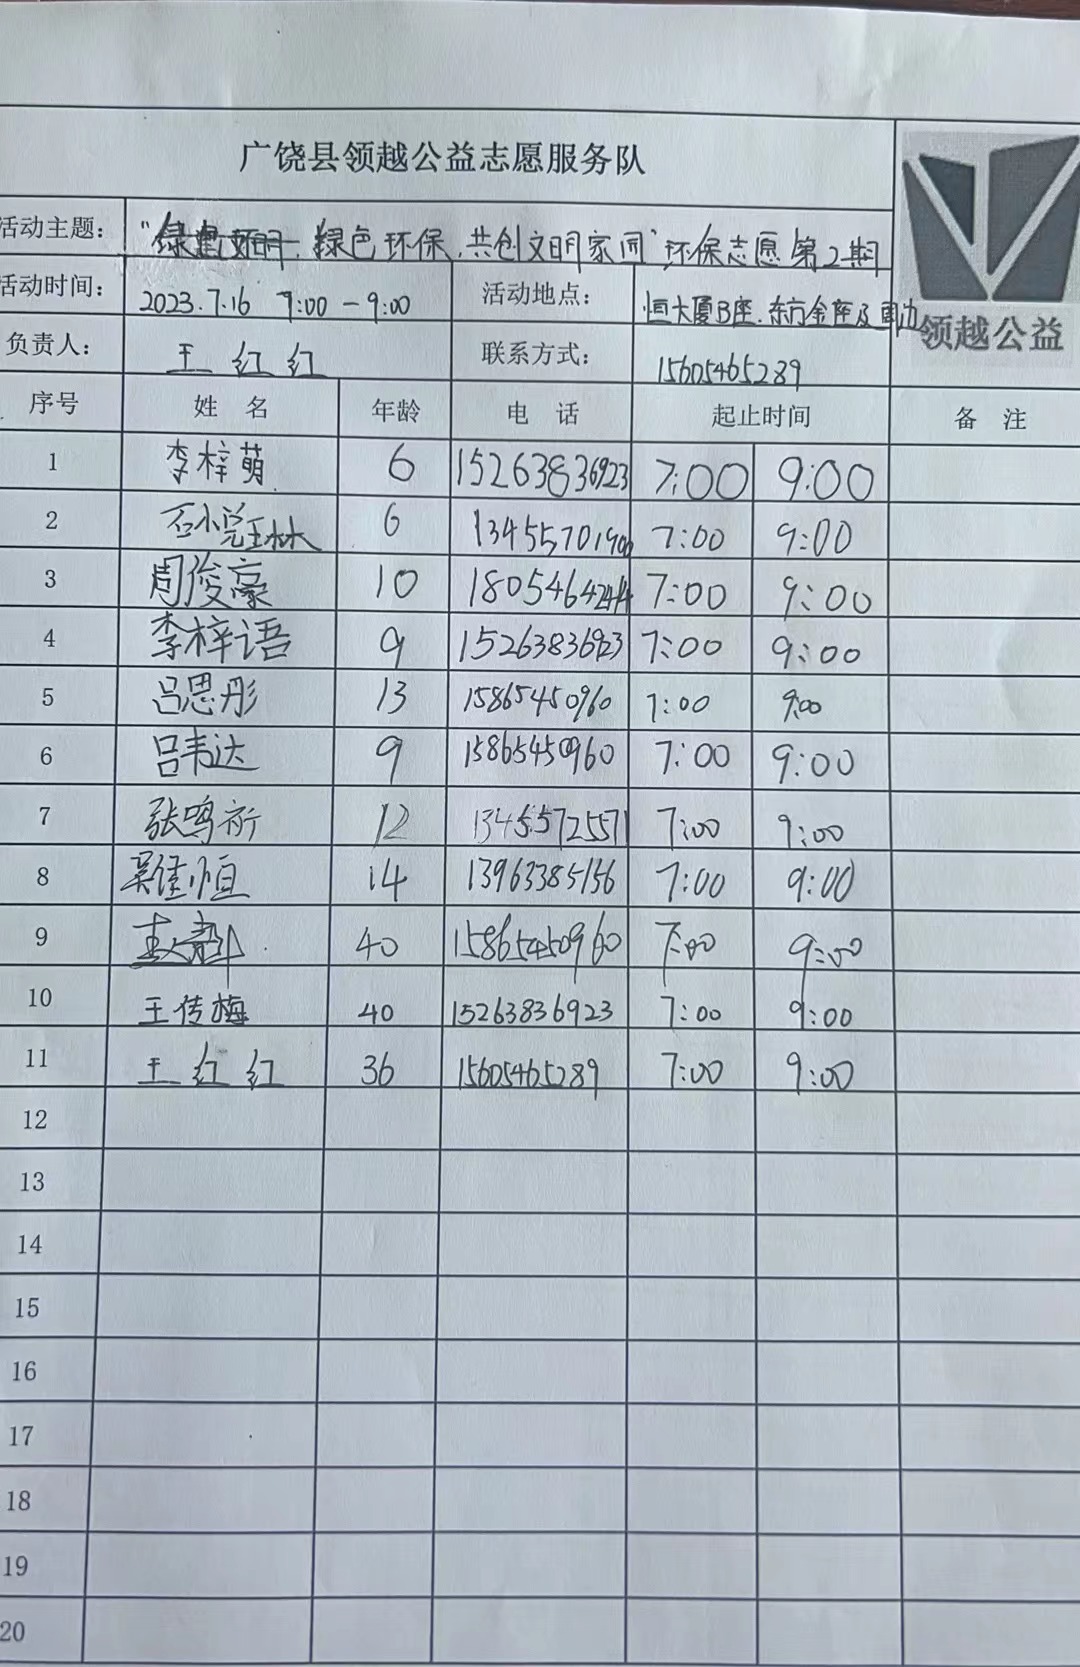 广饶县领越公益志愿服务队
活动主题： "绿色环保，共创文明家园"环保志愿第2期
活动时间： 2023.7.16 7:00－9:00 活动地点： 恒大厦B座、东方金座及周边
领越公益
负责人： 王红红 联系方式： 15605465289
序号 姓名 年龄 电话 起止时间 备注
1 李梓萌 6 15263836923 7:00 9:00
2 6 13455701900 7:00 9:00
3 周俊豪 10 7:00 9:00
4 李梓语 9 15263836923 7:00 9:00
5 吕思彤 13 15865450960 7:00 9:00
6 吕韦达 9 15865450960 7:00 9:00
7 张鸣祈 12 13455725571 7:00 9:00
8 吴佳恒 14 13963385156 7:00 9:00
9 40 15865450960 7:00 9:00
10 王传梅 40 15263836923 7:00 9:00
11 王红红 36 15605465289 7:00 9:00
12
13
14
15
16
17
18
19
20